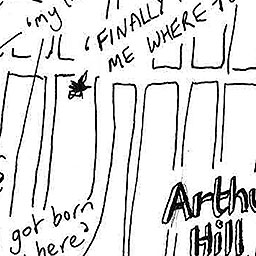 'my
'FINALLY
ME WHERE
got born
here?
Arthu
Hill